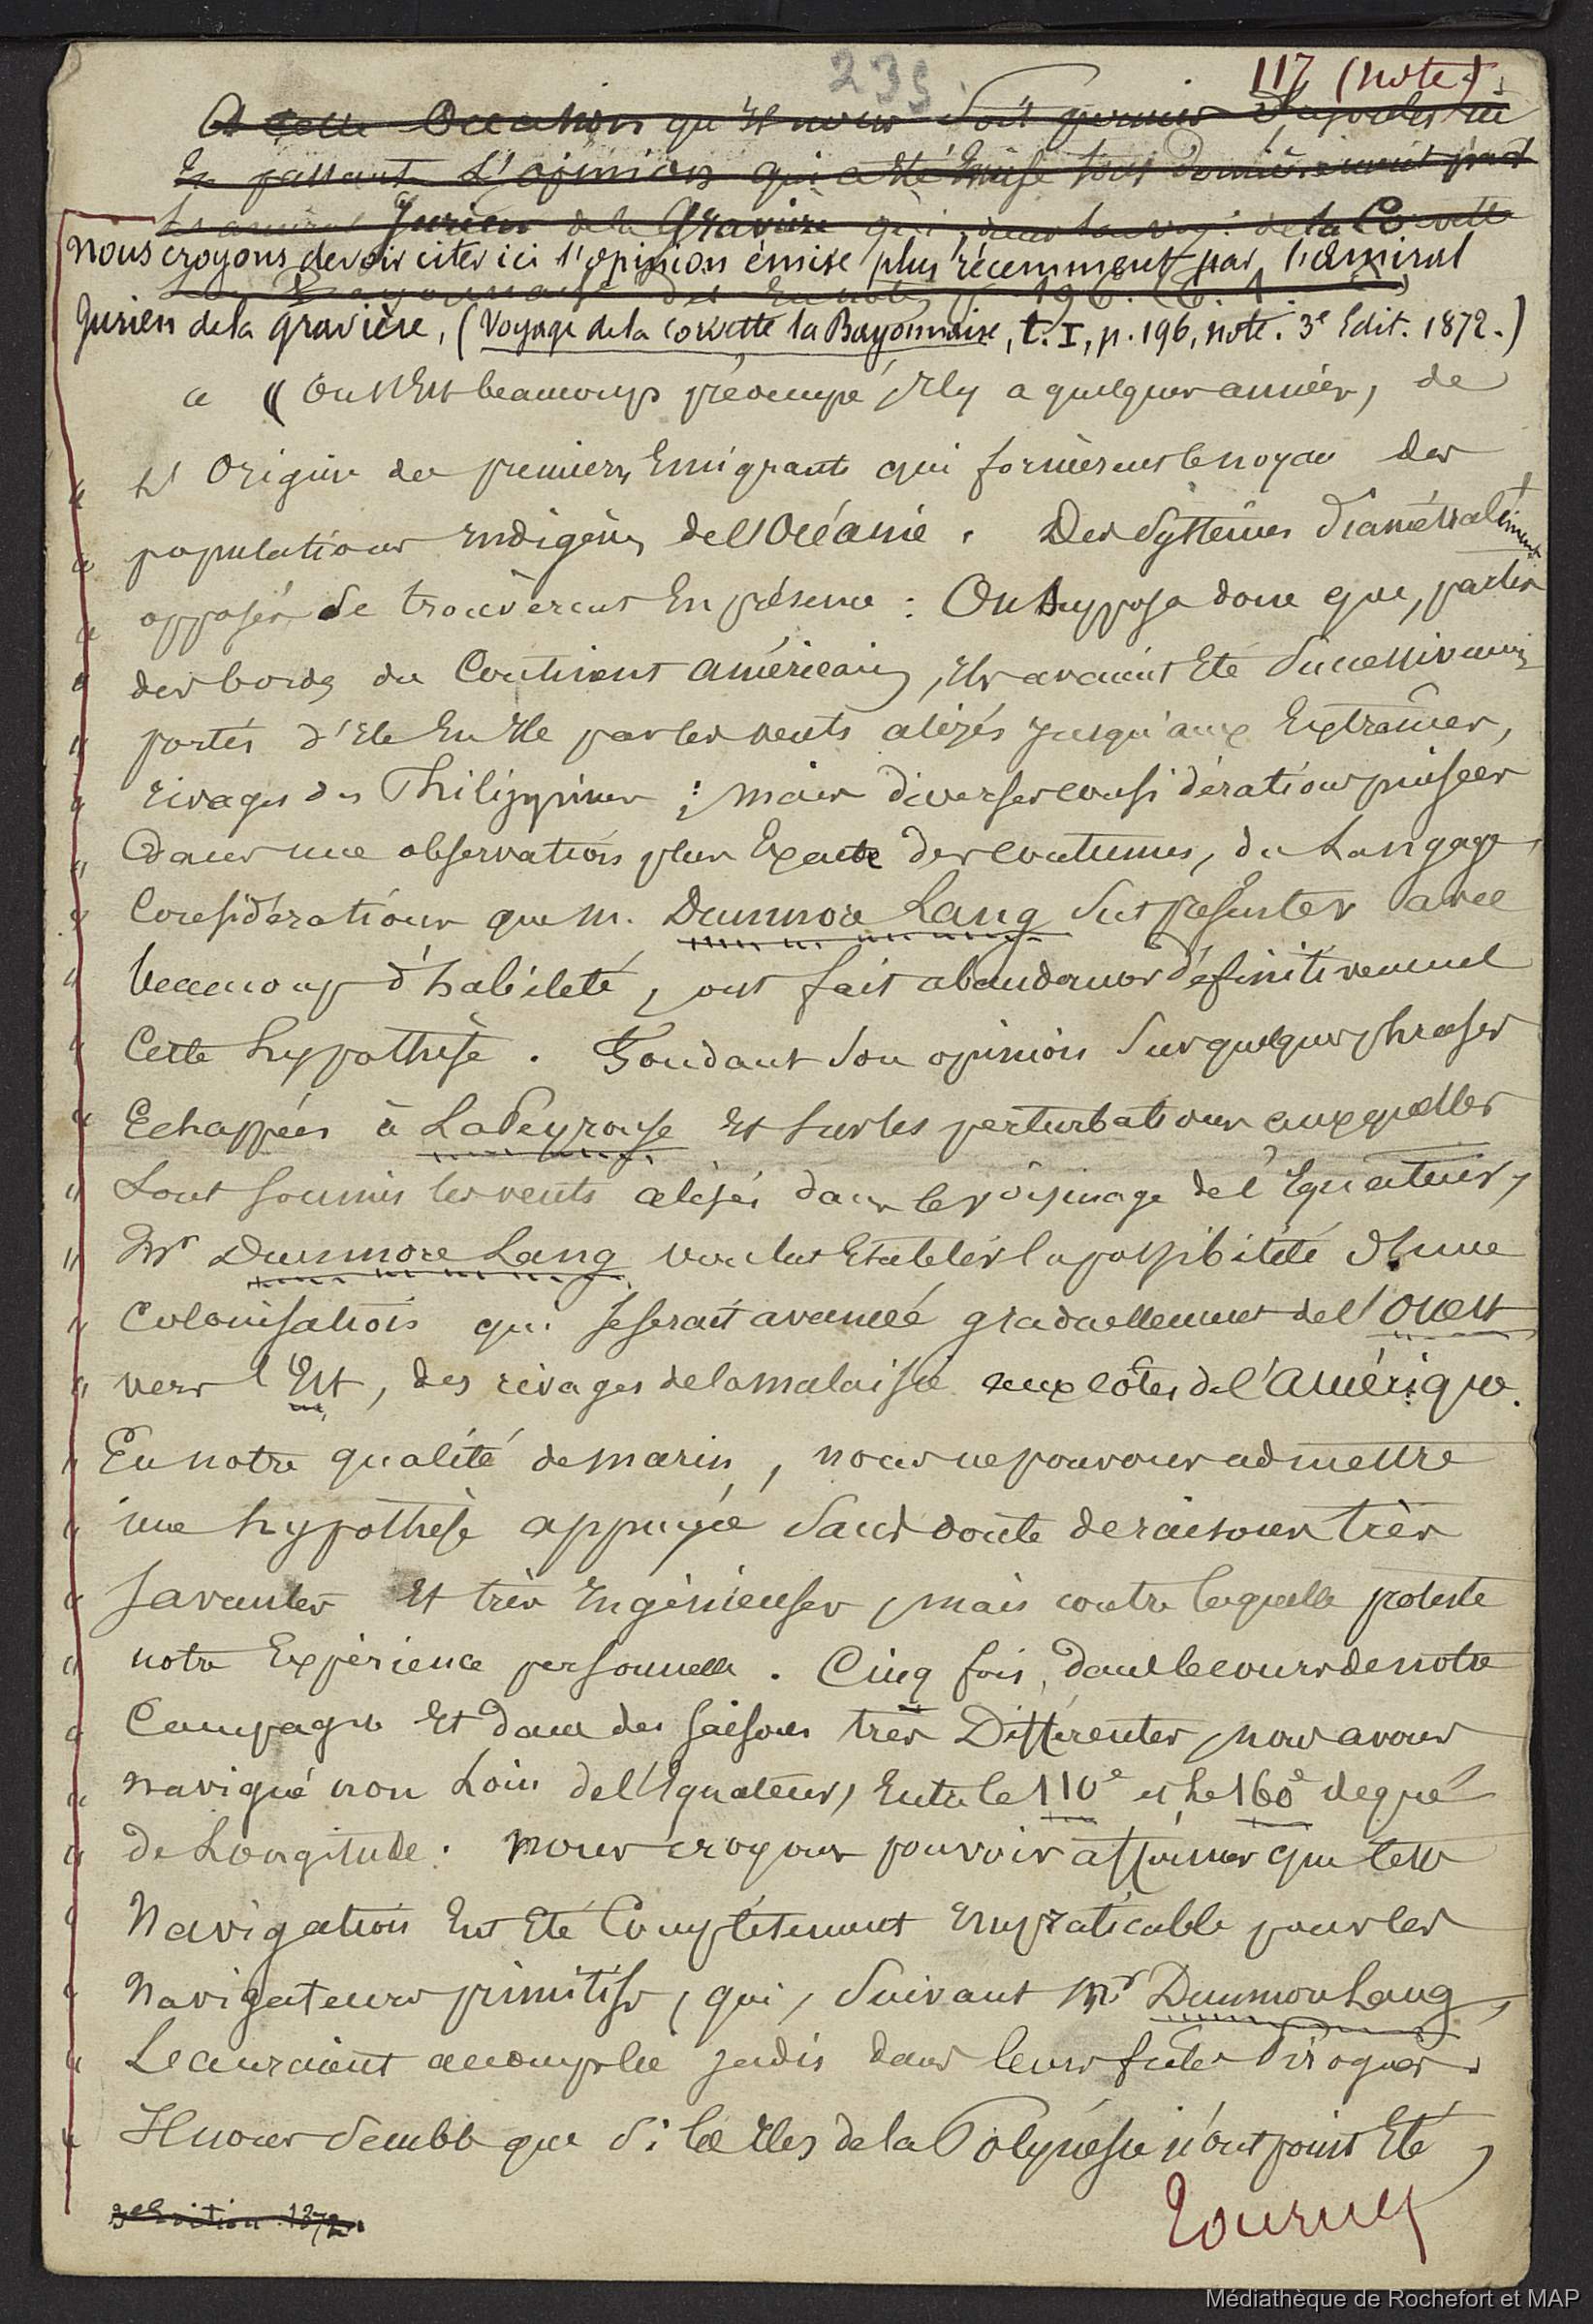 239.
117 (note)
A cette occasion qu'il nous soit permis d'
en passant l'opinion qui a été émise tout dernièrement par
Jurien de la Gravière qui, dans la Corvette
nous croyons devoir citer ici l'opinion émise plus récemment par l'amiral
196.
Jurien de la gravière, (Voyage de la corvette la Bayonnaise, t. I, p. 196, note. 3e Edit. 1872.)
" (On s'est beaucoup préocupé, il y a quelques années, de
" L'origine des premiers Emigrants qui formèrent le noyau des
" populations indigènes de l'Océanie. Des systèmes diamétralement
" opposés se trouvèrent en présence : On supposa donc que, partis
" des bords du Continent américain, ils avaient été successivement
" portés d'ile en ile par les vents alizés jusqu'aux extrêmes,
" rivages des Philippines ; mais diverses considérations puisées
" dans une observation plus exacte des coutumes, du Langage,
" Considérations que m. Dunmore Lang sut présenter avec
" beaucoup d'habileté, ont fait abandonner définitivement
" cette hypothèse. Fondant son opinion sur quelques phrases
" Echappées à La Peyrouse et sur les perturbations auxquelles
" sont soumis les vents alisés dans le voisinage de l'Equateur,
" Mr Dunmore Lang voulut établir la possibilité d'une
" Colonisation qui se serait avancée graduellement de l'ouest
" vers l'Est, des rivages de la malaisie aux côtes de l'Amérique.
" En notre qualité de marin, nous ne pouvons admettre
" une hypothèse appuyée sans doute de raisons très
" savantes et très ingénieuses, mais contre laquelle proteste
" notre Expérience personnelle. Cinq fois, dans le cours de notre
" Campagne et dans des saisons très Différentes, nous avons
" navigué non loin de l'Equateur, entre le 110e et le 160e degré
" de Longitude. nous croyons pouvoir affirmer que cette
" Navigation eut été complètement impraticable pour les
" Navigateurs primitifs, qui, suivant Mr Dunmore Lang,
" L'auraient accomplie jadis dans leurs frêles Pirogues.
" Il nous semble que si les iles de la Polynésie n'ont point été,
3e Edition. 1872.
Tournez
Médiathèque de Rochefort et MAP